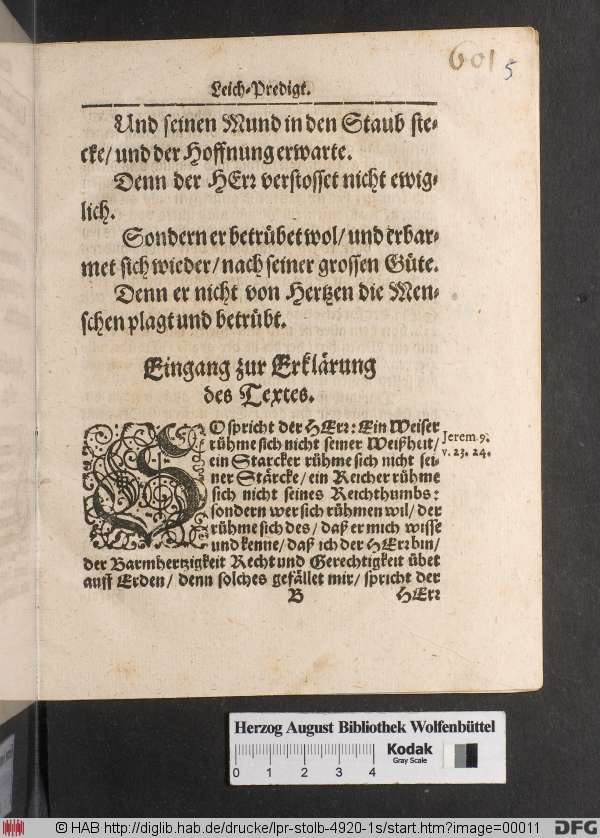 601 5
Leich-Predigt.
Und seinen Mund in den Staub ste-
cke/ und der Hoffnung erwarte.
Denn der HErr verstosset nicht ewig-
lich.
Sondern er betrübet wol/ und erbar-
met sich wieder/ nach seiner grossen Güte.
Denn er nicht von Hertzen die Men-
schen plagt und betrübt.
Eingang zur Erklärung
des Textes.
SO spricht der HErr: Ein Weiser
rühme sich nicht seiner Weißheit/
ein Starcker rühme sich nicht sei-
ner Stärcke/ ein Reicher rühme
sich nicht seines Reichthumbs:
sondern wer sich rühmen wil/ der
rühme sich des/ daß er mich wisse
und kenne/ daß ich der HErr bin/
der Barmhertzigkeit Recht und Gerechtigkeit übet
auff Erden/ denn solches gefället mir/ spricht der
Jerem. 9.
v. 23. 24.
B HErr
Herzog August Bibliothek Wolfenbüttel
Kodak
Gray Scale
0 1 2 3 4
© HAB http://diglib.hab.de/drucke/lpr-stolb-4920-1s/start.htm?image=00011
DFG